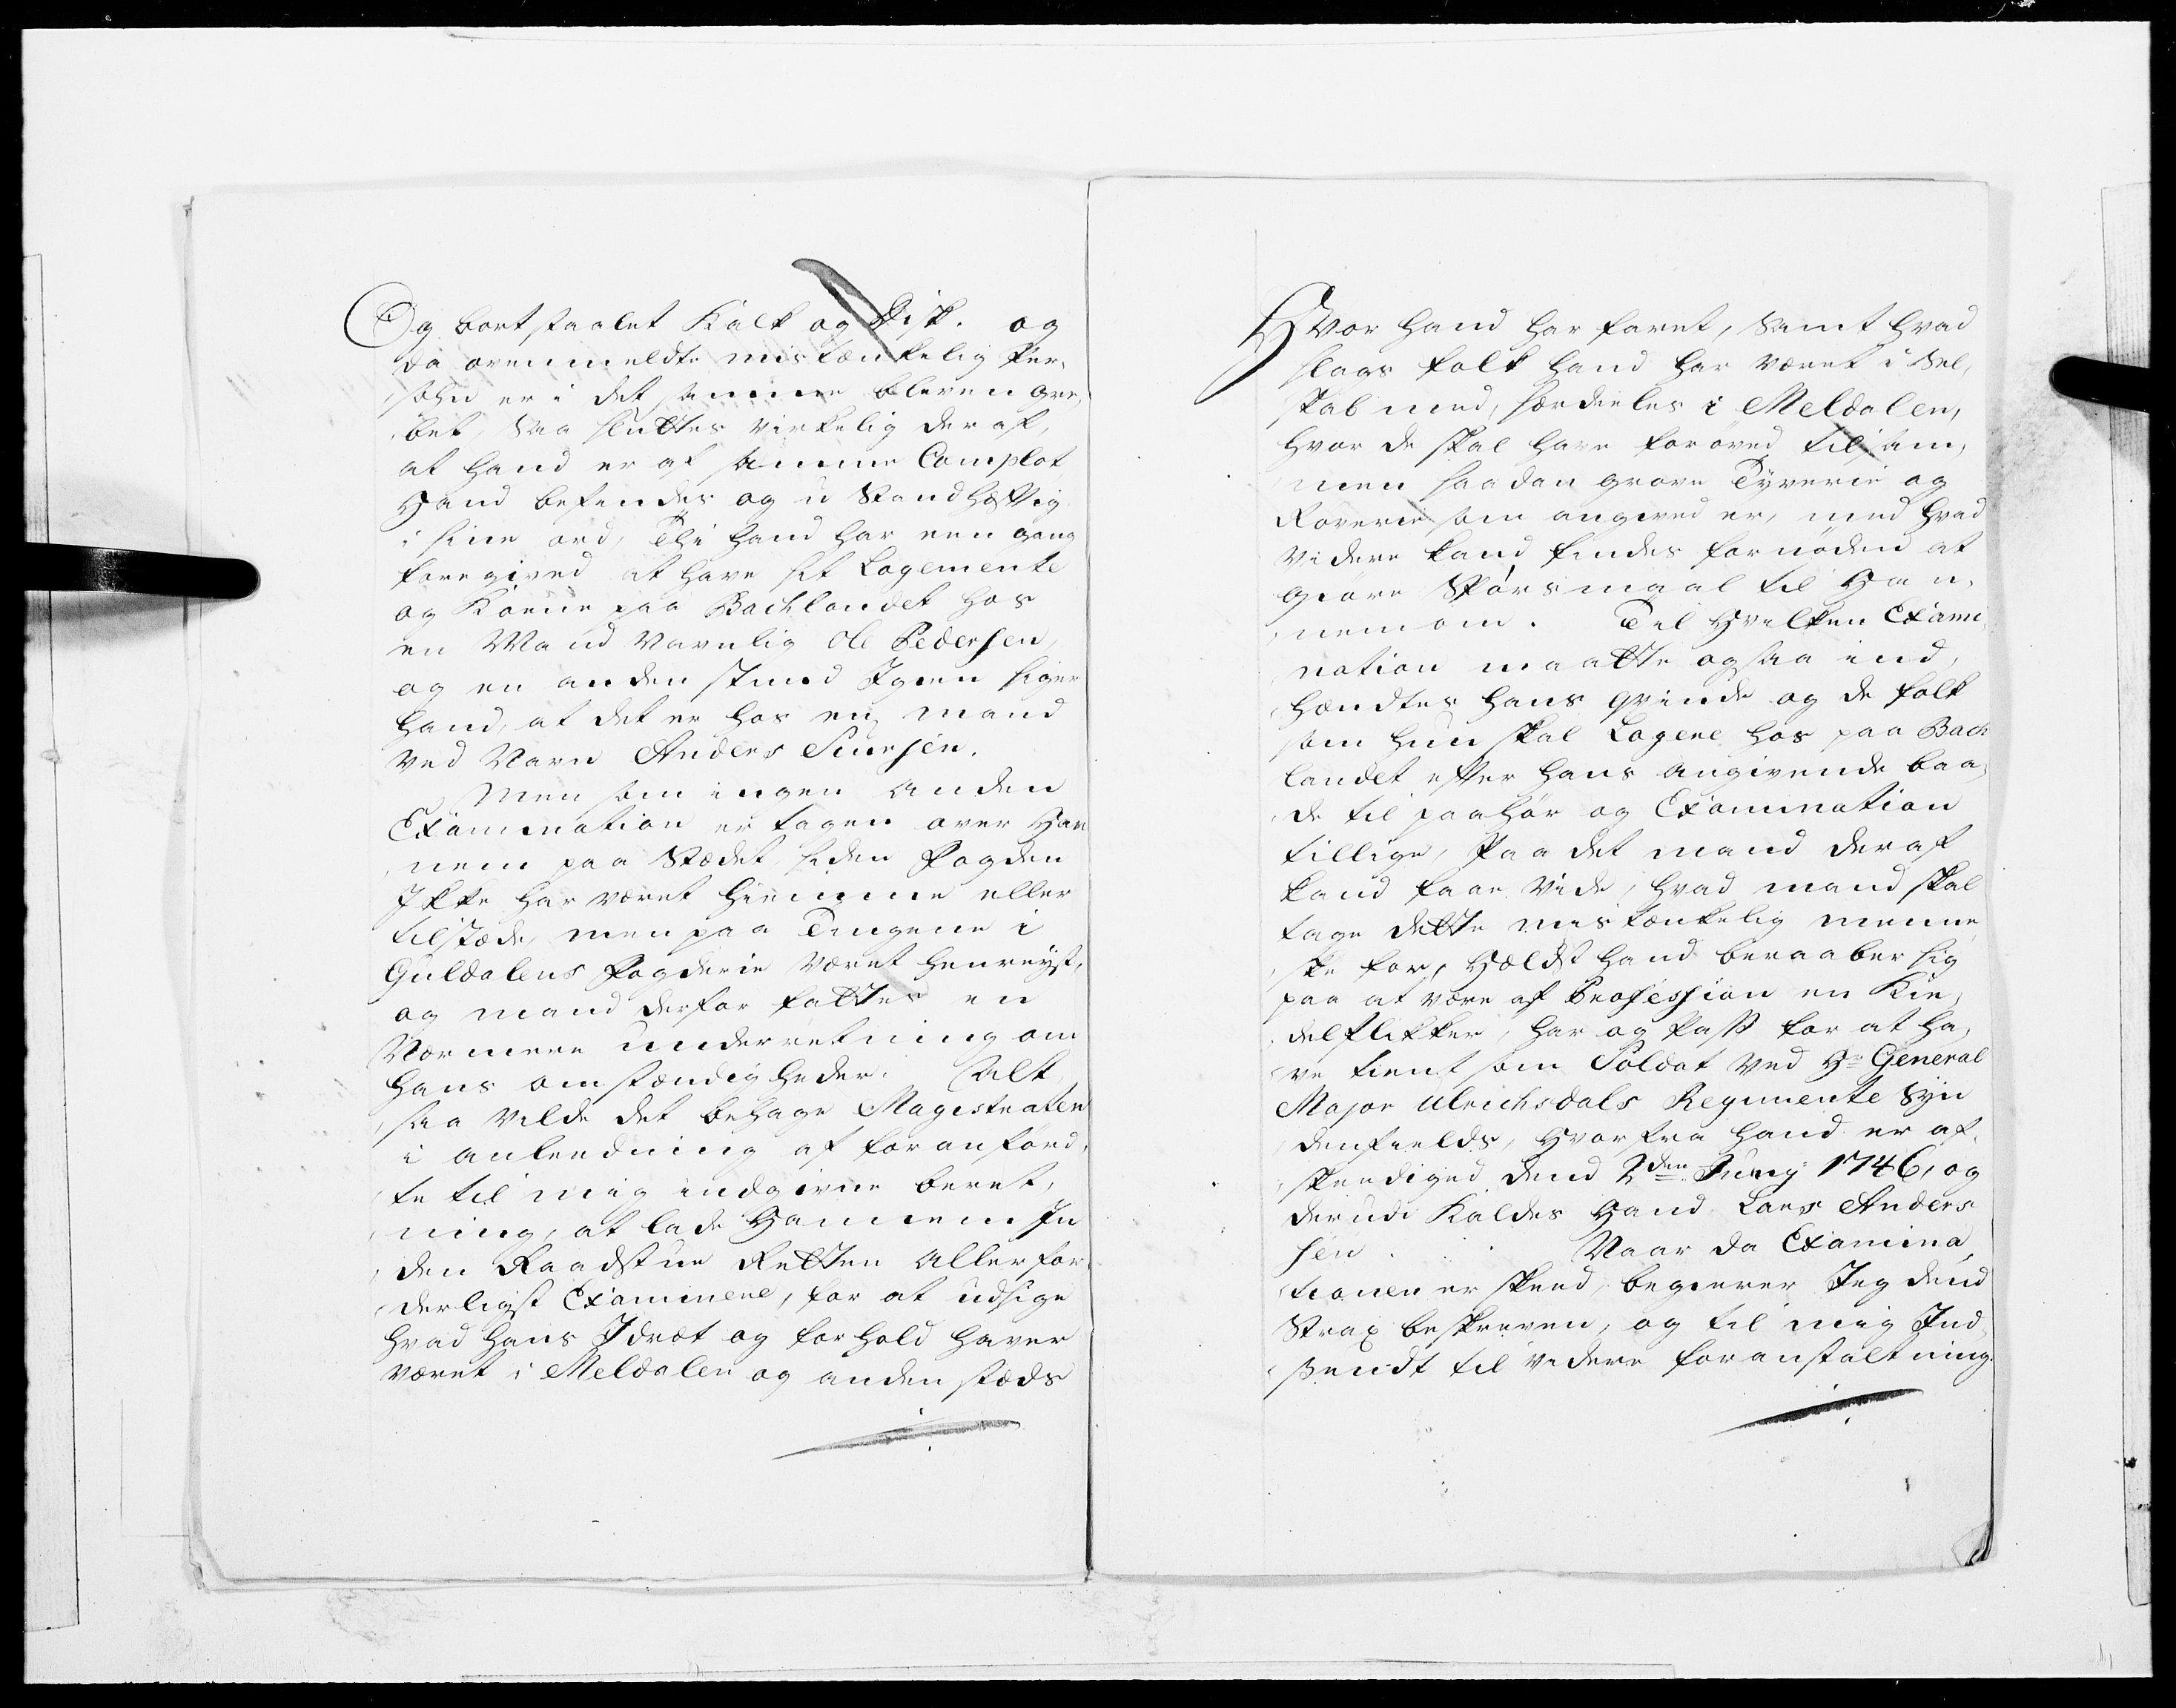 Og bortstaalet Kalk og Disk. og
da ovenmeldte mistænkelig Per,
sohn er i det samme bleven gre,
bet, Saa sluttes virkelig deraf,
at hand er af samme Complot
Hand befindes og u Standhæfftig
i sine ord, Thi hand har een gang
foregived at have sit Logemente
og Koene paa Bachlandet hos
en Mand Navnlig Ole Pedersen,
og en anden stund Igien siger
hand, at det er hos en mand
ved Navn Anders Simesen.
Men som ingen anden
Examination er tagen over Han
nem paa Stædet, siden Fogden
Ikke har været hiemme eller
tilstæde, men paa Tingene i
Guldalens Fogderie været henreyst,
og mand derfor fattes en
Nærmere underretning om
hans omstændigheder. Alt
saa vilde det behage Magistraten
i anleedning af foranførd,
te til mig indgivne beret,
ning, at lade Hannem In
den Raadstue Retten aller for
derligst Examinere, for at udsige
hvad hans Idræt og forhold haver
været i Meldalen og andenstæds
Hvor hand har faret, Samt hvad
slags folk hand har været i Sel,
skab med, særdeeles i Meldalen,
hvor de skal have forøved tilsam,
men saadan grove Tyverie og
Røverie som angived er, med hvad
videre kand findes fornøden at
giøre Spørsmaal til Han,
nem om. Til Hvilken Exami
nation maatte ogsaa ind,
hændtes hans qvinde og de folk
som hun skal Logere hos paa Bach
landet efter hans angivende baa,
de til paahør og Examination
tillige, Paa det mand deraf
kand faae vide, hvad mand skal
tage dette mistænkelig menne,
ske for, Hældst hand beraaber sig
paa at være af Profession en Kie,
delflikker, har og Pass for at ha,
ve tient som Soldat ved Hr General
Major Ulrichsdals Regimente Syn
denfields, Hvorfra hand er af,
skeediged dend 2den Juny 1746, og
derudi Kaldes Hand Lars Anders
sen. Naar da Examina,
tionen er skeed, begierer Jeg dend
Strax beskreven, og til mig Ind
sendt til videre foranstaltning.